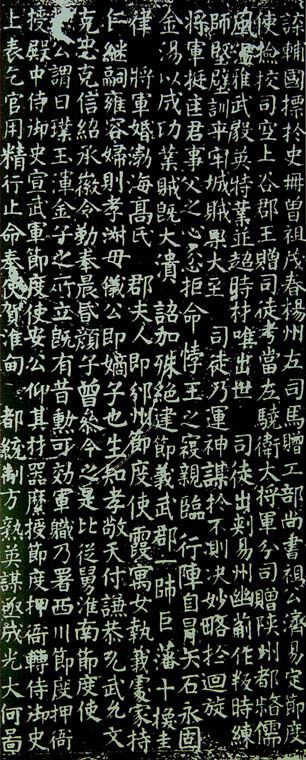 詠輔國標於史冊曾祖茂春揚州左司馬贈工部尚書祖公濟易定節度
使檢校司空上谷郡王贈司徒考當左驍衛大將軍分司贈陝州都督儒
風溫雅武毅英特業並超時材唯出世 司徒出刾易州幽薊作叛時練
師堅壁訓卒守城賊興大至 司徒乃運神謀於不測决妙略於迴旋
將軍挺君事父之心忿拒命悖王之寇親臨 行陣自冒矢石永固
金湯以成功業賊旣大潰 詔加殊絕建節義武郡一帥臣藩十換圭
律 將軍婚渤海高氏 郡夫人即邠州節度使 霞寓女執義處家持
仁繼嗣雍容婦則孝淑母儀公即嫡子也生知孝敬天付謙恭允武允文
克忠克信紹承徽令勤奉晨昏顏子曾參今之是比從舅淮南節度使
公謂曰璞玉渾金子之所立旣有昔勳可効軍職乃署西川節度押衙
授殿中侍御史宣武軍節度使安公仰其材器縻授節度押衙轉侍御史
上表乞官用精行止命奏使賀淮甸 都統制方熟英謀亟成光大何啚